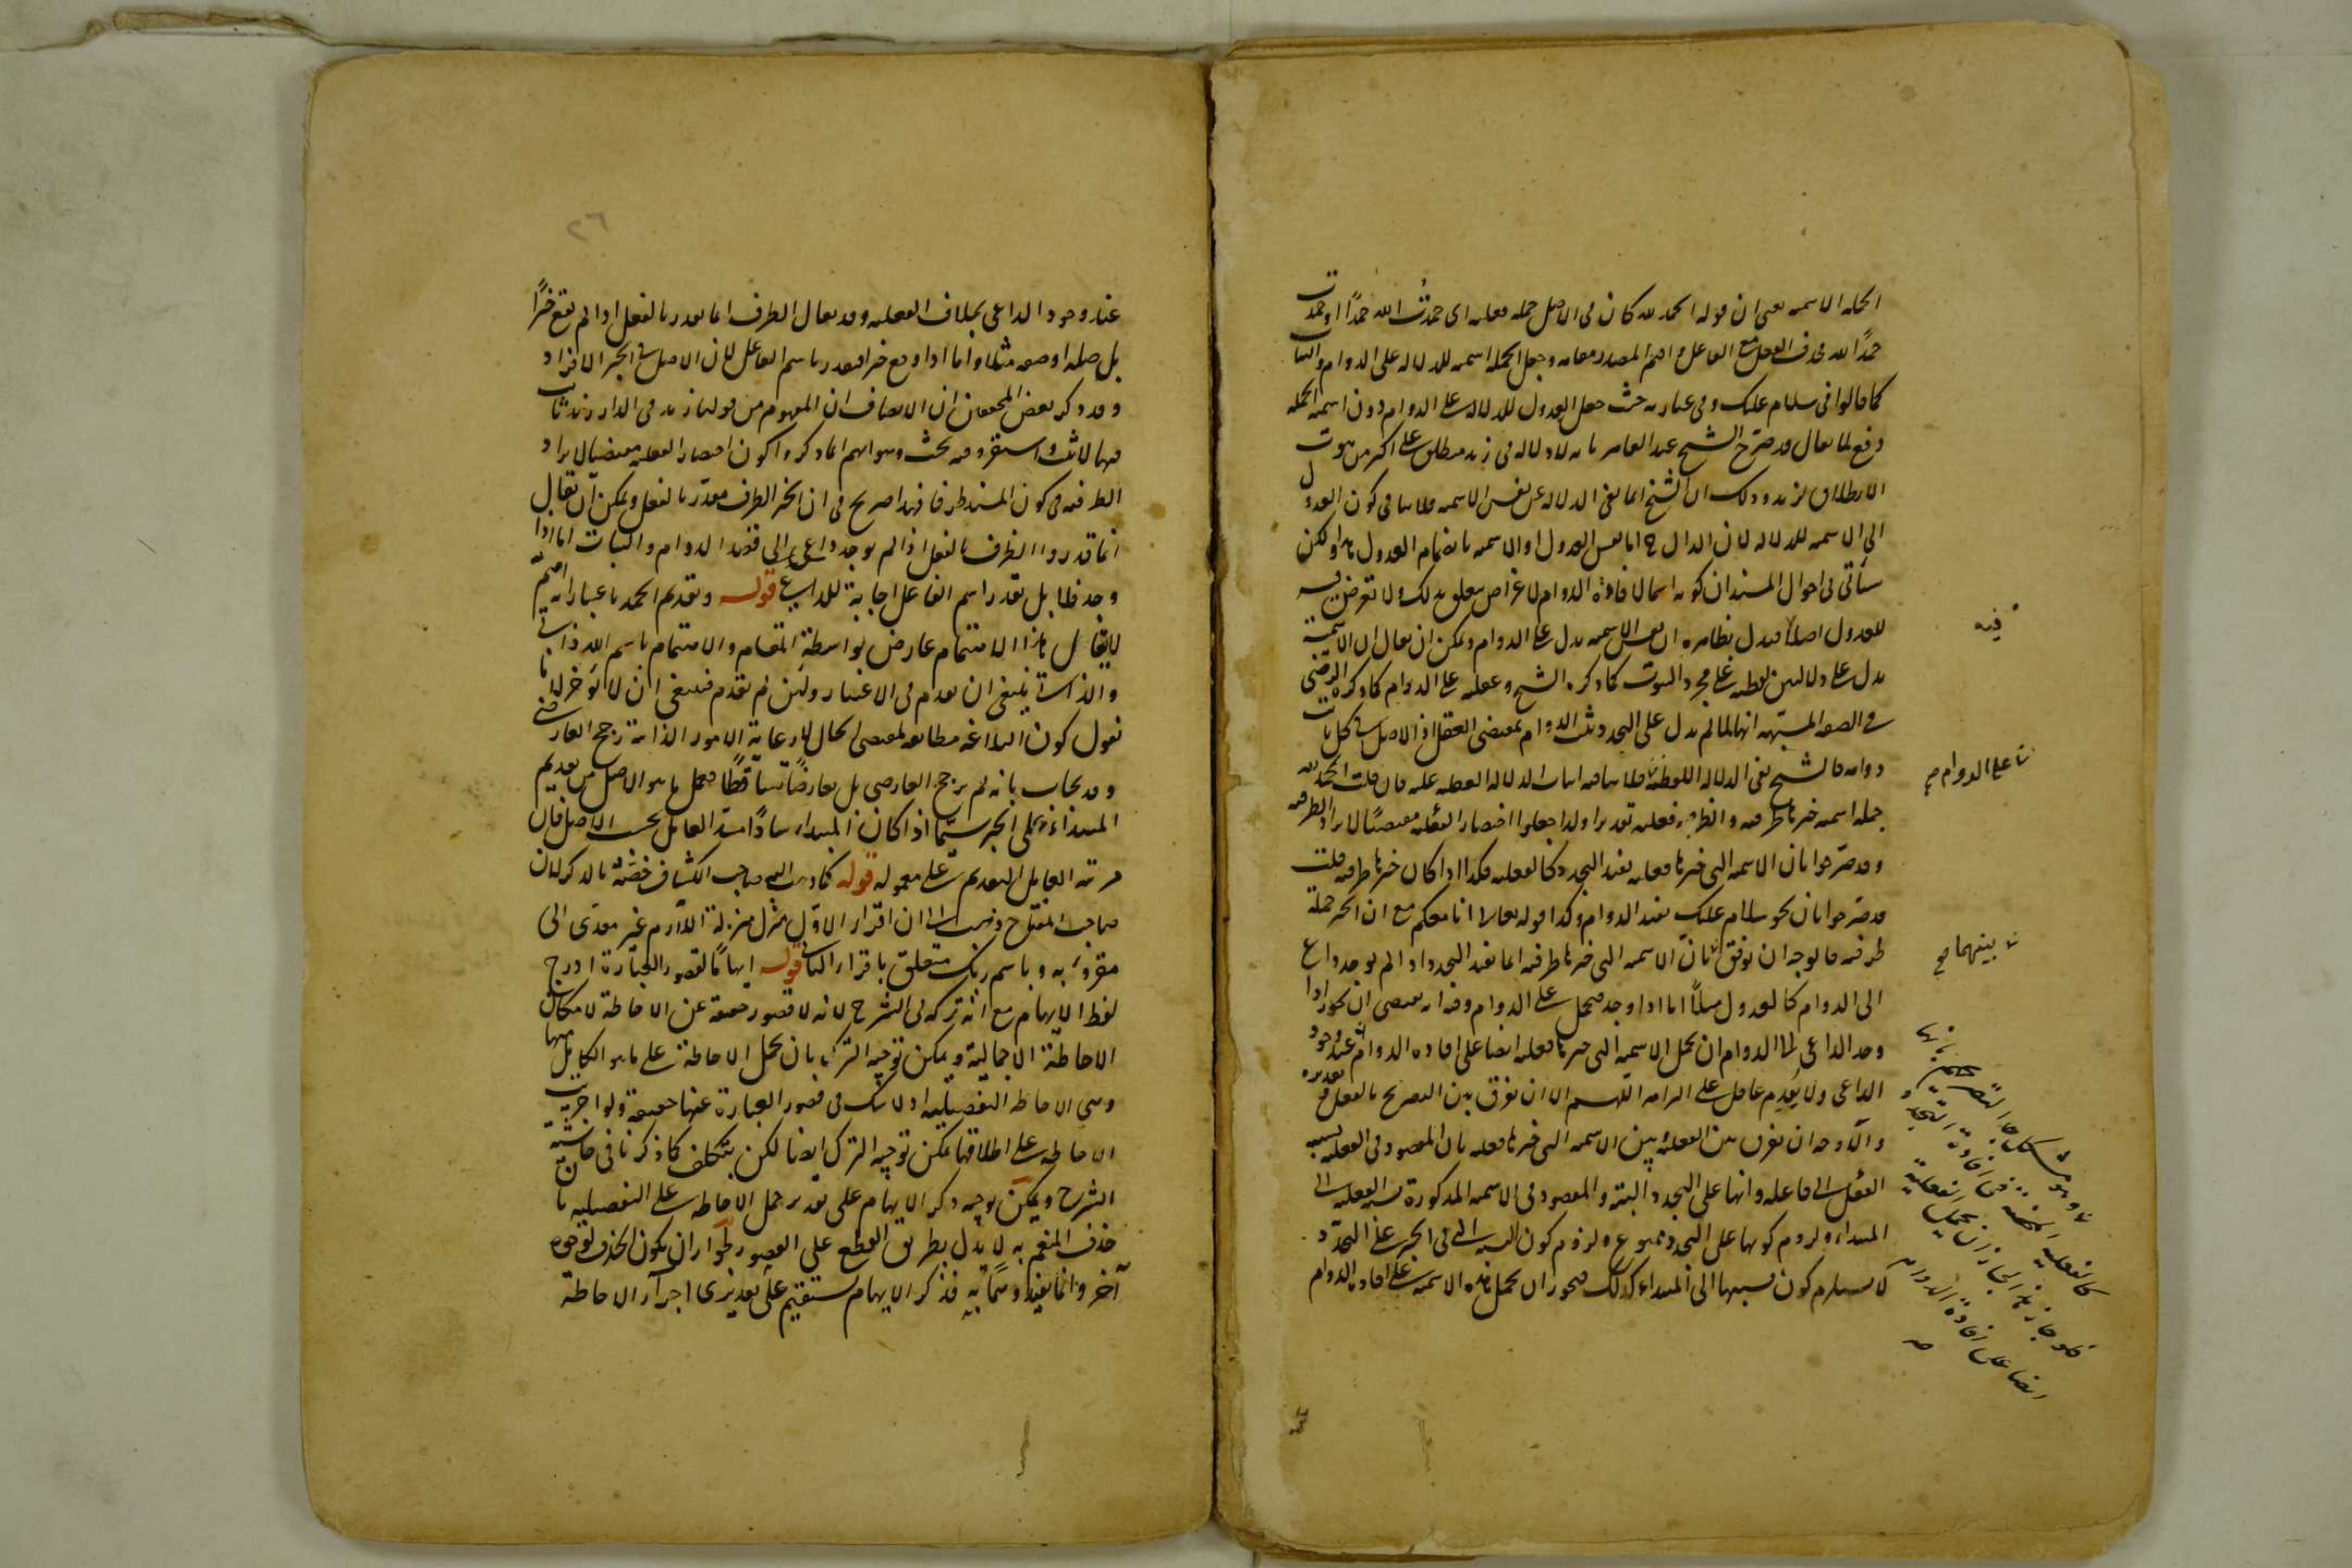 الجملة الاسمية يعني ان قوله الحمد لله كان في الاصل جملة فعلية اي حمدتُ الله حمدًا او حمدت
حمدًا لله فحذف الفعل مع الفاعل واقيم المصدر مقامه وجعل الجملة اسمية للدلالة على الدوام والثبات
كما قالوا في سلام عليك وفي عبارته حيث جعل العدول للدلالة على الدوام دون اسمية الجملة
دفع لما يقال قد صرّح الشيخ عبد القاهر بانه لا دلالة في زيد منطلق على اكثر من ثبوت
الانطلاق لزيد وذلك ان الشيخ انما نفى الدلالة عن نفس الاسمية فلا ينافي كون العدول
الى الاسمية للدلالة لان الدال ح اما نفس العدول او الاسمية بانضمام العدول هذا ولكن
سيأتي في احوال المسند ان كونه اسما لافادة الدوام لاغراض يتعلق بذلك ولا تعرض فيه
للعدول اصلا فيدل بظاهره ان نفس الاسمية يدل على الدوام ويمكن ان يقال ان الاسمية
يدل على دلالتين لفظية على مجرد الثبوت كما ذكره الشيخ وعقلية على الدوام كما ذكره الرضي
في الصفة المشبهة انها لما لم يدل على التجدد ثبت الدوام بمقتضى العقل اذ الاصل في كل ثابت
دوامه فالشيخ نفى الدلالة اللفظية فلا ينافيه اثبات الدلالة العقلية عليه فان قلت الحمد لله
جملة اسمية خبرها ظرفية والظرفية فعلية تقديرا ولذا جعلوا اختصار الفعلية مقتضيًا لايراد الظرفية
وقد صرّحوا بان الاسمية التي خبرها فعلية يفيد التجدد كالفعلية فكذا اذا كان خبرها ظرفية قلت
قد صرّحوا بان نحو سلام عليك يفيد الدوام وكذا قوله تعالى انا معكم مع ان الخبر جملة
ظرفية فالوجه ان يوفق بان الاسمية التي خبرها ظرفية انما يفيد التجدد اذا لم يوجد داع
الى الدوام كالعدول مثلًا اما اذا وجد فيحمل على الدوام وفيه انه يقتضي ان يجوز اذا
وجد الداعي الى الدوام ان يحمل الاسمية التي خبرها فعلية ايضا على افادة الدوام عند وجود
الداعي ولا يُقدِم عاقل على التزامه اللهم الا ان نفرق بين التصريح بالفعل وتقديره
والاوجه ان نفرق بين الفعلية وبين الاسمية التي خبرها فعلية بان المقصود في الفعلية نسبة
الفعل الى فاعله وانها على التجدد البتة والمقصود في الاسمية المذكورة نسبة الفعلية الى
المبتداء ولزوم كونها على التجدد ممنوع ولزوم كون النسبة التي في الخبر على التجدد
لا يستلزم كون نسبتها الى المبتداء كذلك فيجوز ان يحمل هذه الاسمية على افادة الدوام
فيه
على الدوام صح
بينهما صح
كالفعلية في افادة التجدد
فلو جاز هذا لجاز ان يحمل الفعلية
ايضا على افادة الدوام
عند
٢٦
عند وجود الداعي بخلاف الفعلية وقد يقال الظرف انما يقدر بالفعل اذا لم يقع خبرًا
بل صلة او صفة مثلا واما اذا وقع خبرا فيقدر باسم الفاعل لان الاصل في الخبر الافراد
وقد ذكر بعض المحققين ان الانصاف ان المفهوم من قولنا زيد في الدار زيد ثابت
فيها لا ثبت واستقر وفيه بحث وهو انهم لما ذكروا كون اختصار الفعلية مقتضيا لايراد
الظرفية في كون المسند ظرفا فهذا صريح في ان الخبر الظرف مقدّر بالفعل ويمكن ان يقال
انما قدروا الظرف بالفعل اذا لم يوجد داعي الى قصد الدوام والثبات اما اذا
وجد فلا بل تقدر اسم الفاعل اجابة للداعي قوله وتقديم الحمد باعتبار انه اهم
لا يقال هذا الاهتمام عارض بواسطة المقام والاهتمام باسم الله ذاتي
والذاتي ينبغي ان يقدم في الاعتبار ولئن لم يقدم فينبغي ان لا يؤخر لانا
نقول كون البلاغة مطابقة لمقتضى الحال لا رعاية الامور الذاتية رجح العارضي
وقد يجاب بانه لم يرجح العارضي بل تعارضا تساقطًا فحمل بما هو الاصل من تقديم
المبتداء على الخبر سيّما اذا كان المبتداء سادًا مسدّ العامل بحسب الاصل فان
مرتبة العامل التقديم على معموله قوله كما ذهب اليه صاحب الكشاف خصّه بالذكر لان
صاحب المفتاح ذهب الى ان اقرأ الاوّل منزّل منزلة اللازم غير معدّى الى
مقروء به وباسم ربك متعلق باقرأ الثاني قوله ايهامًا لقصور العبارة ادرج
لفظ الايهام مع انه تركه في الشرح لانه لا قصور حقيقة عن الاحاطة لامكان
الاحاطة الاجمالية ويمكن توجيه الترك بان يحمل الاحاطة على ما هو الكامل منها
وهي الاحاطة التفصيلية ولا شك في قصور العبارة عنها حقيقة ولو اجريت
الاحاطة على اطلاقها يمكن توجيه الترك ايضا لكن بتكلف كما ذكرنا في حاشية
الشرح ويمكن توجيه ذكر الايهام على تقدير حمل الاحاطة على التفصيلية بان
حذف المنعم به لا يدل بطريق القطع على القصور لجواز ان يكون الحذف لوجوه
آخر وانما يفيد ايهامًا به فذكر الايهام مستقيم على تقديري اجراء الاحاطة